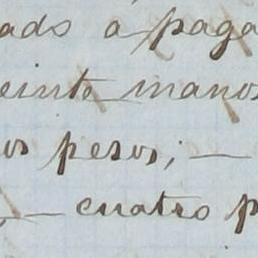 ado a paga
einte manos
os pesos; —
— cuatro p